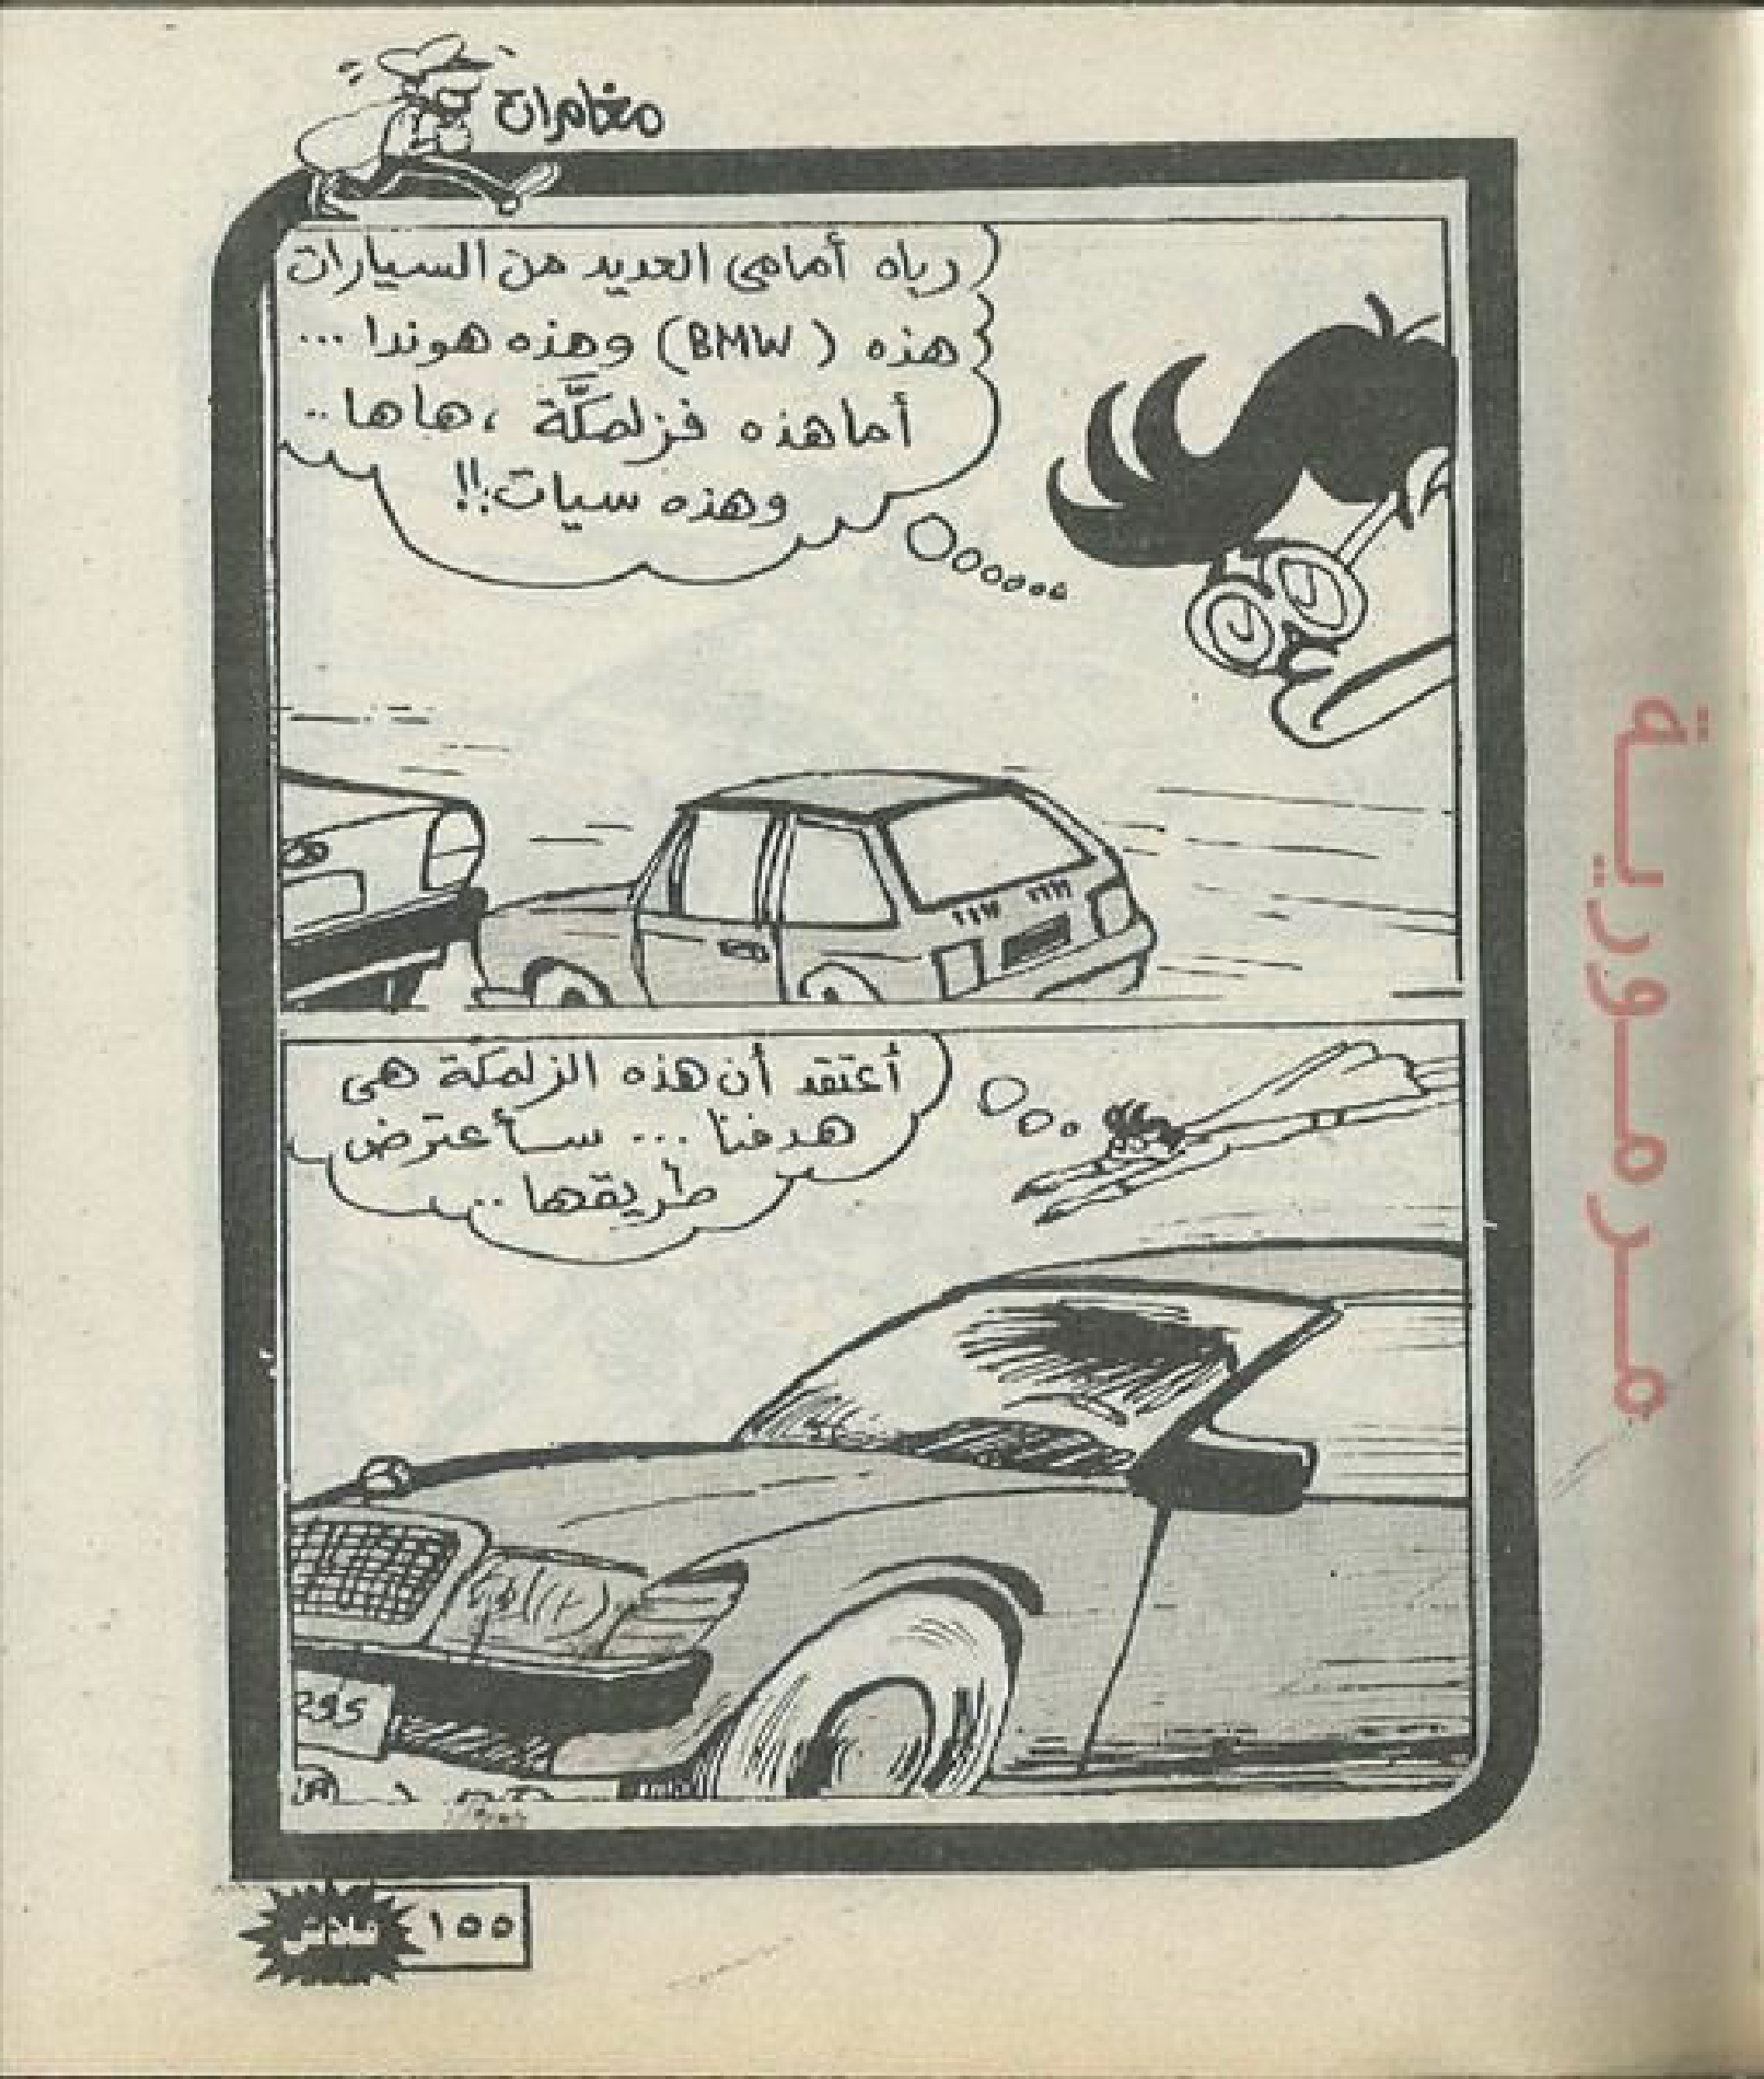 مغامرات
رباه أمامى العديد من السيارات
هذه (BMW) وهذه هوندا ...
أما هذه فزلمكَّة ، هاها ..
وهذه سيات !!
أعتقد أن هذه الزلمكة هى
هدفنا ... سأعترض
طريقها ..
295
فلاش ١٥٥
مرمورية